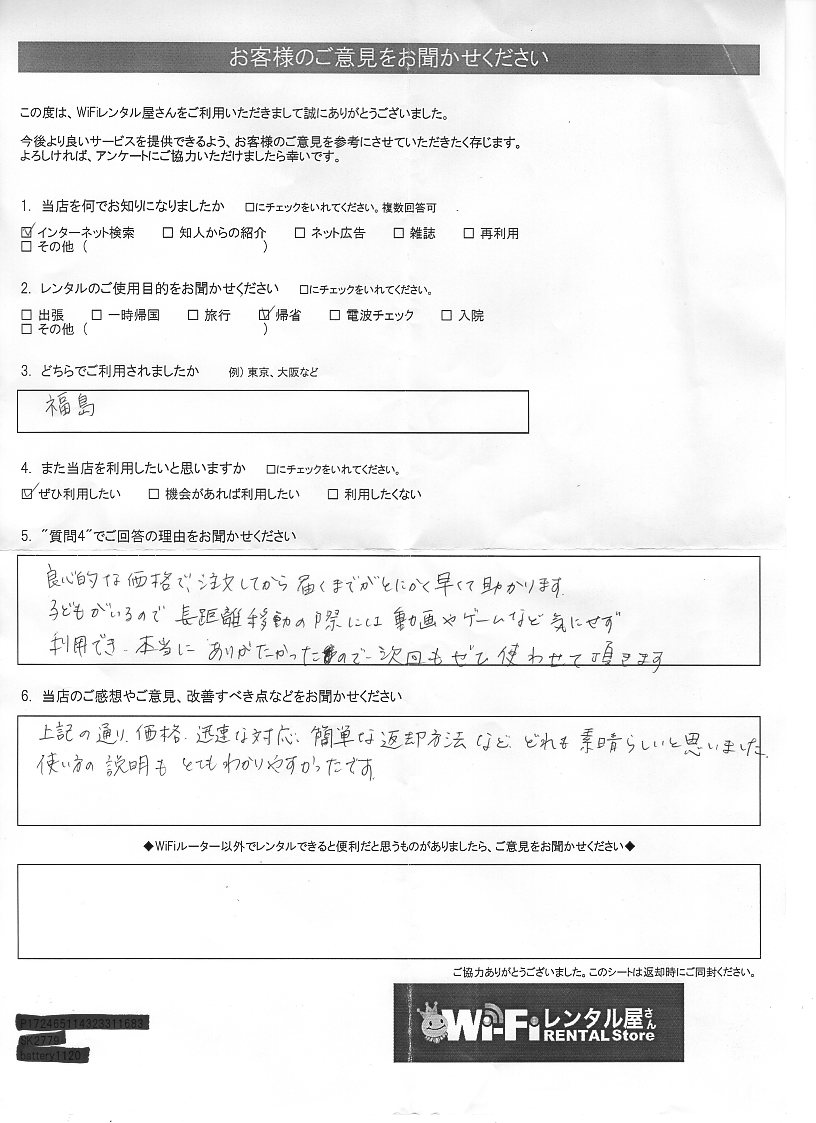 お客様のご意見をお聞かせください
この度は、WiFiレンタル屋さんをご利用いただきまして誠にありがとうございました。
今後より良いサービスを提供できるよう、お客様のご意見を参考にさせていただきたく存じます。
よろしければ、アンケートにご協力いただけましたら幸いです。
1. 当店を何でお知りになりましたか □にチェックをいれてください。複数回答可
☑インターネット検索 □ 知人からの紹介 □ ネット広告 □ 雑誌 □ 再利用
□ その他 ( )
2. レンタルのご使用目的をお聞かせください □にチェックをいれてください。
□ 出張 □ 一時帰国 □ 旅行 ☑帰省 □ 電波チェック □ 入院
□ その他 ( )
3. どちらでご利用されましたか 例) 東京、大阪など
福島
4. また当店を利用したいと思いますか □にチェックをいれてください。
☑ぜひ利用したい □ 機会があれば利用したい □ 利用したくない
5. "質問4"でご回答の理由をお聞かせください
良心的な価格で、注文してから届くまでがとにかく早くて助かります。
子どもがいるので長距離移動の際には動画やゲームなど気にせず
利用でき、本当にありがたかったので、次回もぜひ使わせて頂きます
6. 当店のご感想やご意見、改善すべき点などをお聞かせください
上記の通り、価格、迅速な対応、簡単な返却方法など、どれも素晴らしいと思いました。
使い方の説明もとてもわかりやすかったです。
◆WiFiルーター以外でレンタルできると便利だと思うものがありましたら、ご意見をお聞かせください◆
ご協力ありがとうございました。このシートは返却時にご同封ください。
Wi-Fiレンタル屋さん
RENTAL Store